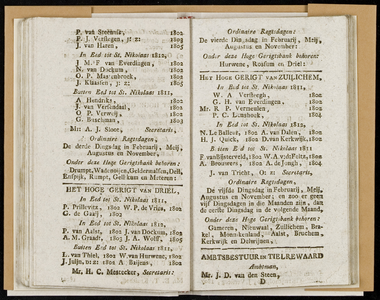 P. van Steenis, 1802
P. J. Verstegen, 1: 2: 1805
J. van Haren, 1805
In Eed tot St. Nikolaas 1812,
J. M. P. van Everdingen, 1802
N. van Dockum, 1802
O. P. Masfenbroek, 1802
J. Klaassen, 3: 2: 1805
Buiten Eed tot St. Nikolaas 1811,
A. Hendriks, 1802
J. van Versendaal, 1802
O. P. Verweij, 1802
G. Buschman, 1802
Mr: A. J. Sloot, Secretaris.
Ordinaire Ragtsdagen,
De derde Dingsdag in Februarij, Meij,
Augustus en November.
Onder deze Hoge Gerigtsbank behoren:
Drumpt, Wadenoijen, Geldermalsen, Deil,
Enspijk, Rumpt, Gellikum en Meteren:
HET HOGE GERIGT van DRIEL,
In Eed tot St. Nikolaas 1811,
P. Prillevitz, 1802 W. P. de Vries, 1802
G. de Gaaij, 1802
In Eed tot St. Nikolaas 1812,
P. van Aalst, 1802 J. van Dockum, 1805
A. M. Graadt, 1803 J. A. Wolff, 1805
Buiten Eed tot St. Nikolaas 1811,
L. van Thiel, 1802 W. van Hurwenen, 1802
J. Juijn, 1802 A. Baijens, 1802
Mr. H. C. Mestecker, Secretaris:
Ordinaire Ragtsdagen:
De vierde Dingsdag in Februarij, Meij,
Augustus en November:
Onder deze Hoge Gerigtsbank behoren:
Hurwene, Rossum en Driel:
Het HOGE GERIGT van ZUILICHEM,
In Eed tot St. Nikolaas 1811,
W. A. Verstegh, 1802
G. H. van Everdingen, 1802
Mr. R. P. Vermeulen, 1802
P. C. Lunsbeek, 1802
In Eed tot St. Nikolaas 1812,
N. Le Balleur, 1802 A. van Dalen, 1802
H. J. Quick, 1802 D. van Kerkwijk, 1802
Buiten Eed tot St. Nikolaas 1811
P. van Bijsterveld, 1802 W. A. v. d: Feltz, 1802
A. Brouwers, 1802 A. de Jongh, 1804
J. van Tricht, Secretaris,
Ordinaire Ragtsdagen,
De vijfde Dingsdag in Februarij, Meij,
Augustus en November; en zoo er geen
vijf Dingsdagen in die Maanden zijn, dan
de eerste Dingsdag in de volgende Maand,
Onder deze Hoge Gerigtsbank behoren:
Gameren, Nieuwaal, Zuilichem, Bra-
kel, Monnikenland, Aalst, Bruchem,
Kerkwijk en Delwijnen,
AMBTSBESTUUR in TIELREWAARD
Ambtman,
Mr. J. D. van den Steen,
D